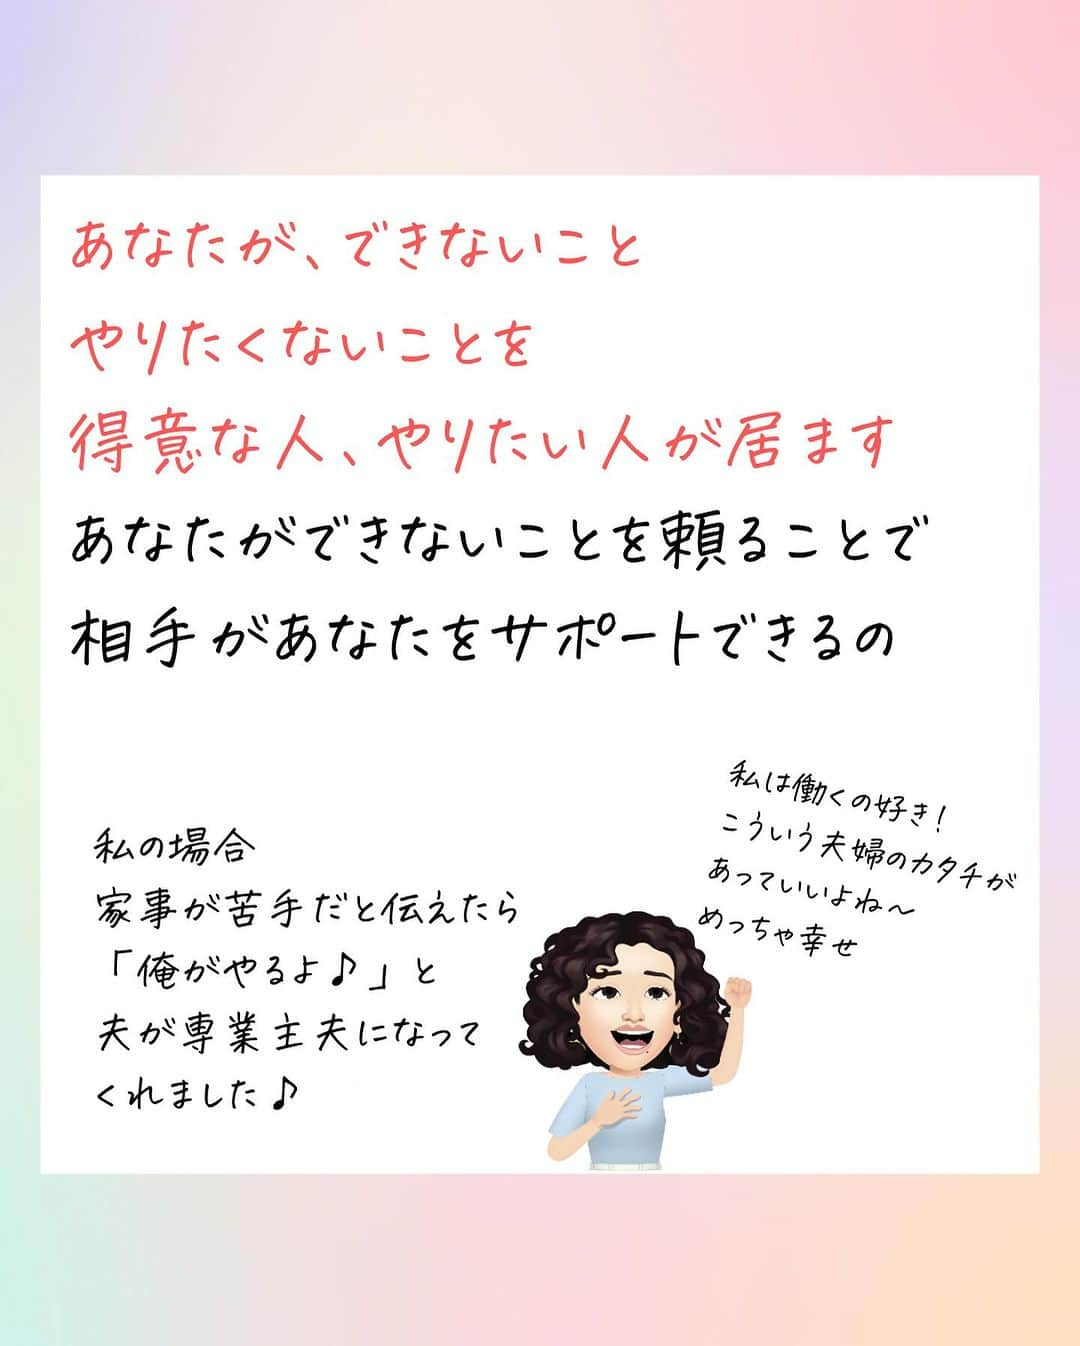 あなたが、できないこと
やりたくないことを
得意な人、やりたい人が居ます
あなたができないことを頼ることで
相手があなたをサポートできるの
私の場合
家事が苦手だと伝えたら
「俺がやるよ♪」と
夫が専業主夫になって
くれました♪
私は働くの好き!
こういう夫婦のカタチが
あっていいよね〜
めっちゃ幸せ